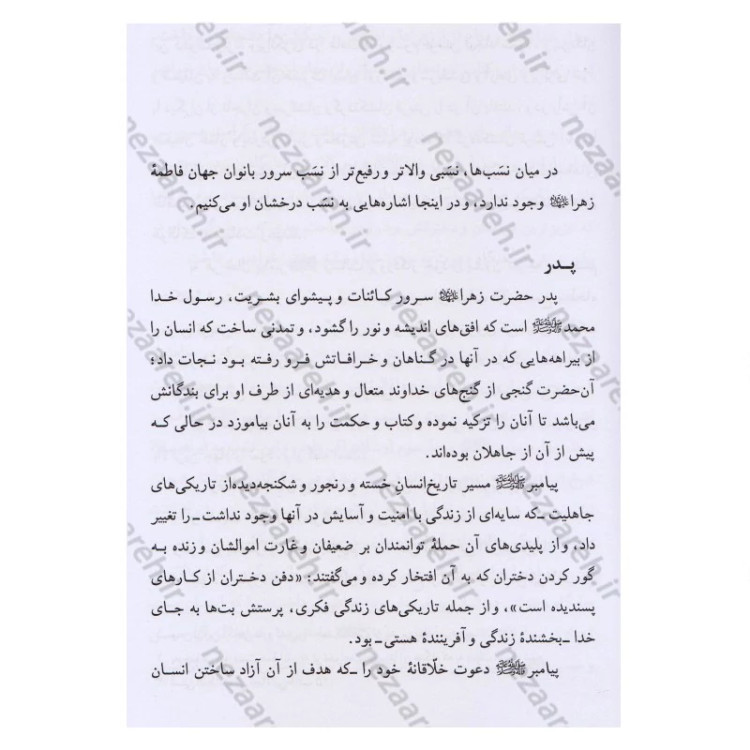 در میان نسَب‌ها، نسَبی والاتر و رفیع‌تر از نسَب سرور بانوان جهان فاطمهٔ
زهرا وجود ندارد، و در اینجا اشاره‌هایی به نسَب درخشان او می‌کنیم.
پدر
پدر حضرت زهرا سرور کائنات و پیشوای بشریت، رسول خدا
محمد است که افق‌های اندیشه و نور را گشود، و تمدنی ساخت که انسان را
از بیراهه‌هایی که در آنها در گناهان و خرافاتش فرو رفته بود نجات داد؛
آن‌حضرت گنجی از گنج‌های خداوند متعال و هدیه‌ای از طرف او برای بندگانش
می‌باشد تا آنان را تزکیه نموده و کتاب و حکمت را به آنان بیاموزد در حالی که
پیش از آن از جاهلان بوده‌اند.
پیامبر مسیر تاریخ انسانِ خسته و رنجور و شکنجه‌دیده از تاریکی‌های
جاهلیت ـ که سایه‌ای از زندگی با امنیت و آسایش در آنها وجود نداشت ـ را تغییر
داد، و از پلیدی‌های آن حملهٔ توانمندان بر ضعیفان و غارت اموالشان و زنده به
گور کردن دختران که به آن افتخار کرده و می‌گفتند: «دفن دختران از کارهای
پسندیده است»، و از جمله تاریکی‌های زندگی فکری، پرستش بت‌ها به جای
خدا ـ بخشندهٔ زندگی و آفرینندهٔ هستی ـ بود.
پیامبر دعوت خلّاقانهٔ خود را ـ که هدف از آن آزاد ساختن انسان
nezaareh.ir